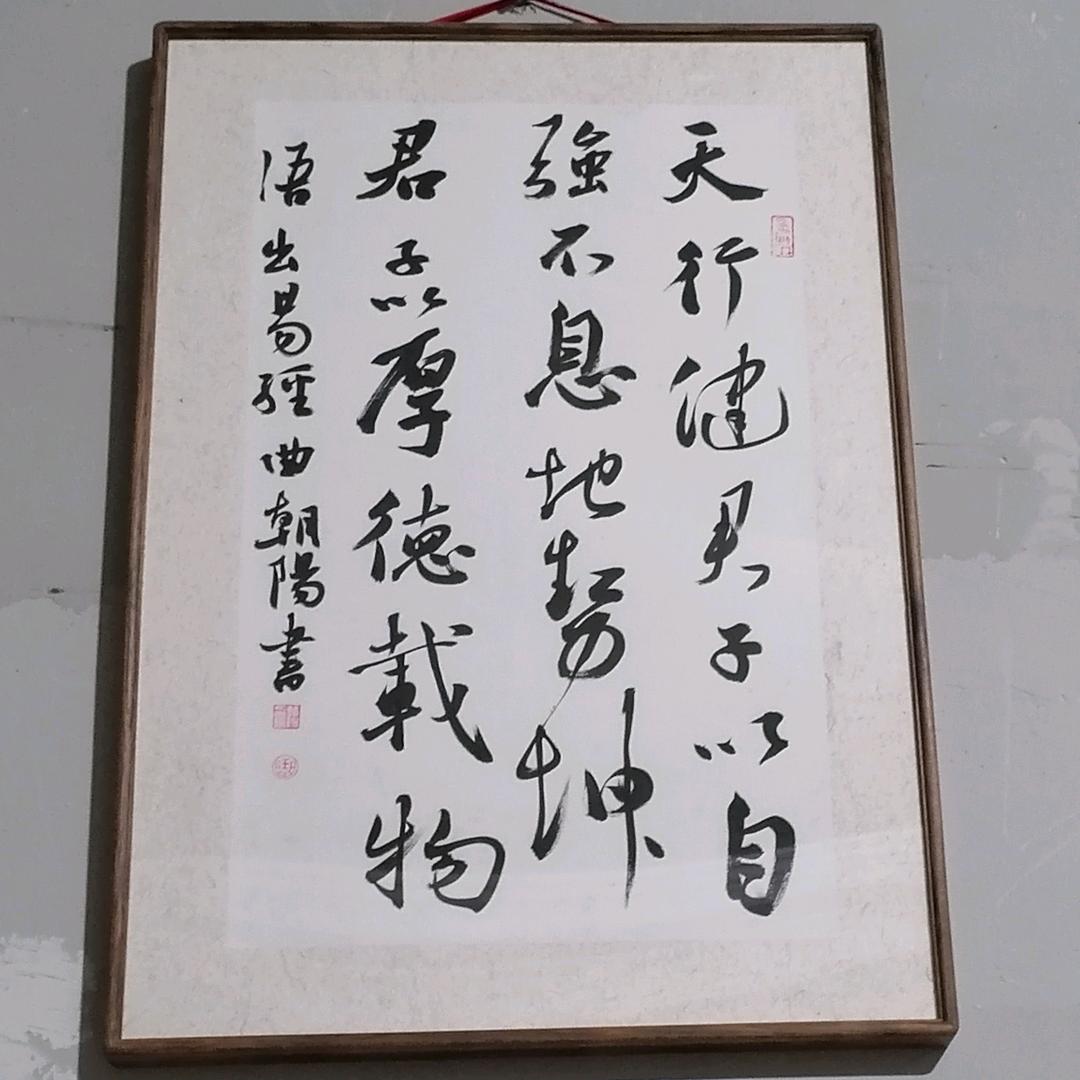 天行健君子以自
強不息地勢坤
君子以厚德載物
語出易經曲朝陽書